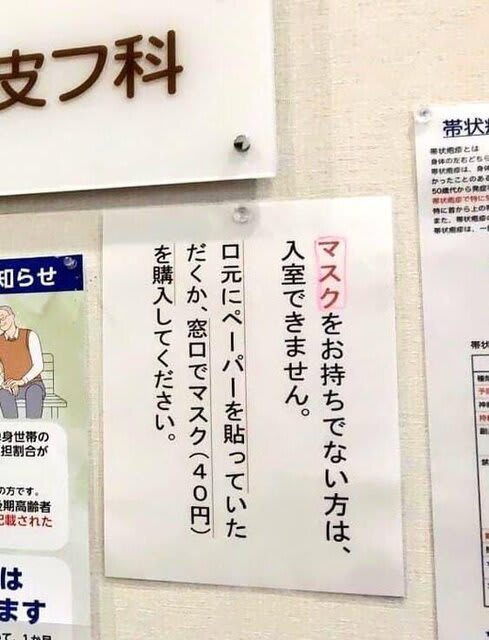 皮フ科
マスクをお持ちでない方は、
入室できません。
口元にペーパーを貼っていた
だくか、窓口でマスク(40円)
を購入してください。
知らせ
身世帯の
担割合が
の方です。
後期高齢者
記載された
は
ます
帯状疱疹
帯状疱疹とは
身体の左右どちら
帯状疱疹は、身体
かったことのある
50歳代から発症率
帯状疱疹で特に
特に首から上の
また、帯状疱疹の
帯状疱疹は、一
帯状
種類
予防